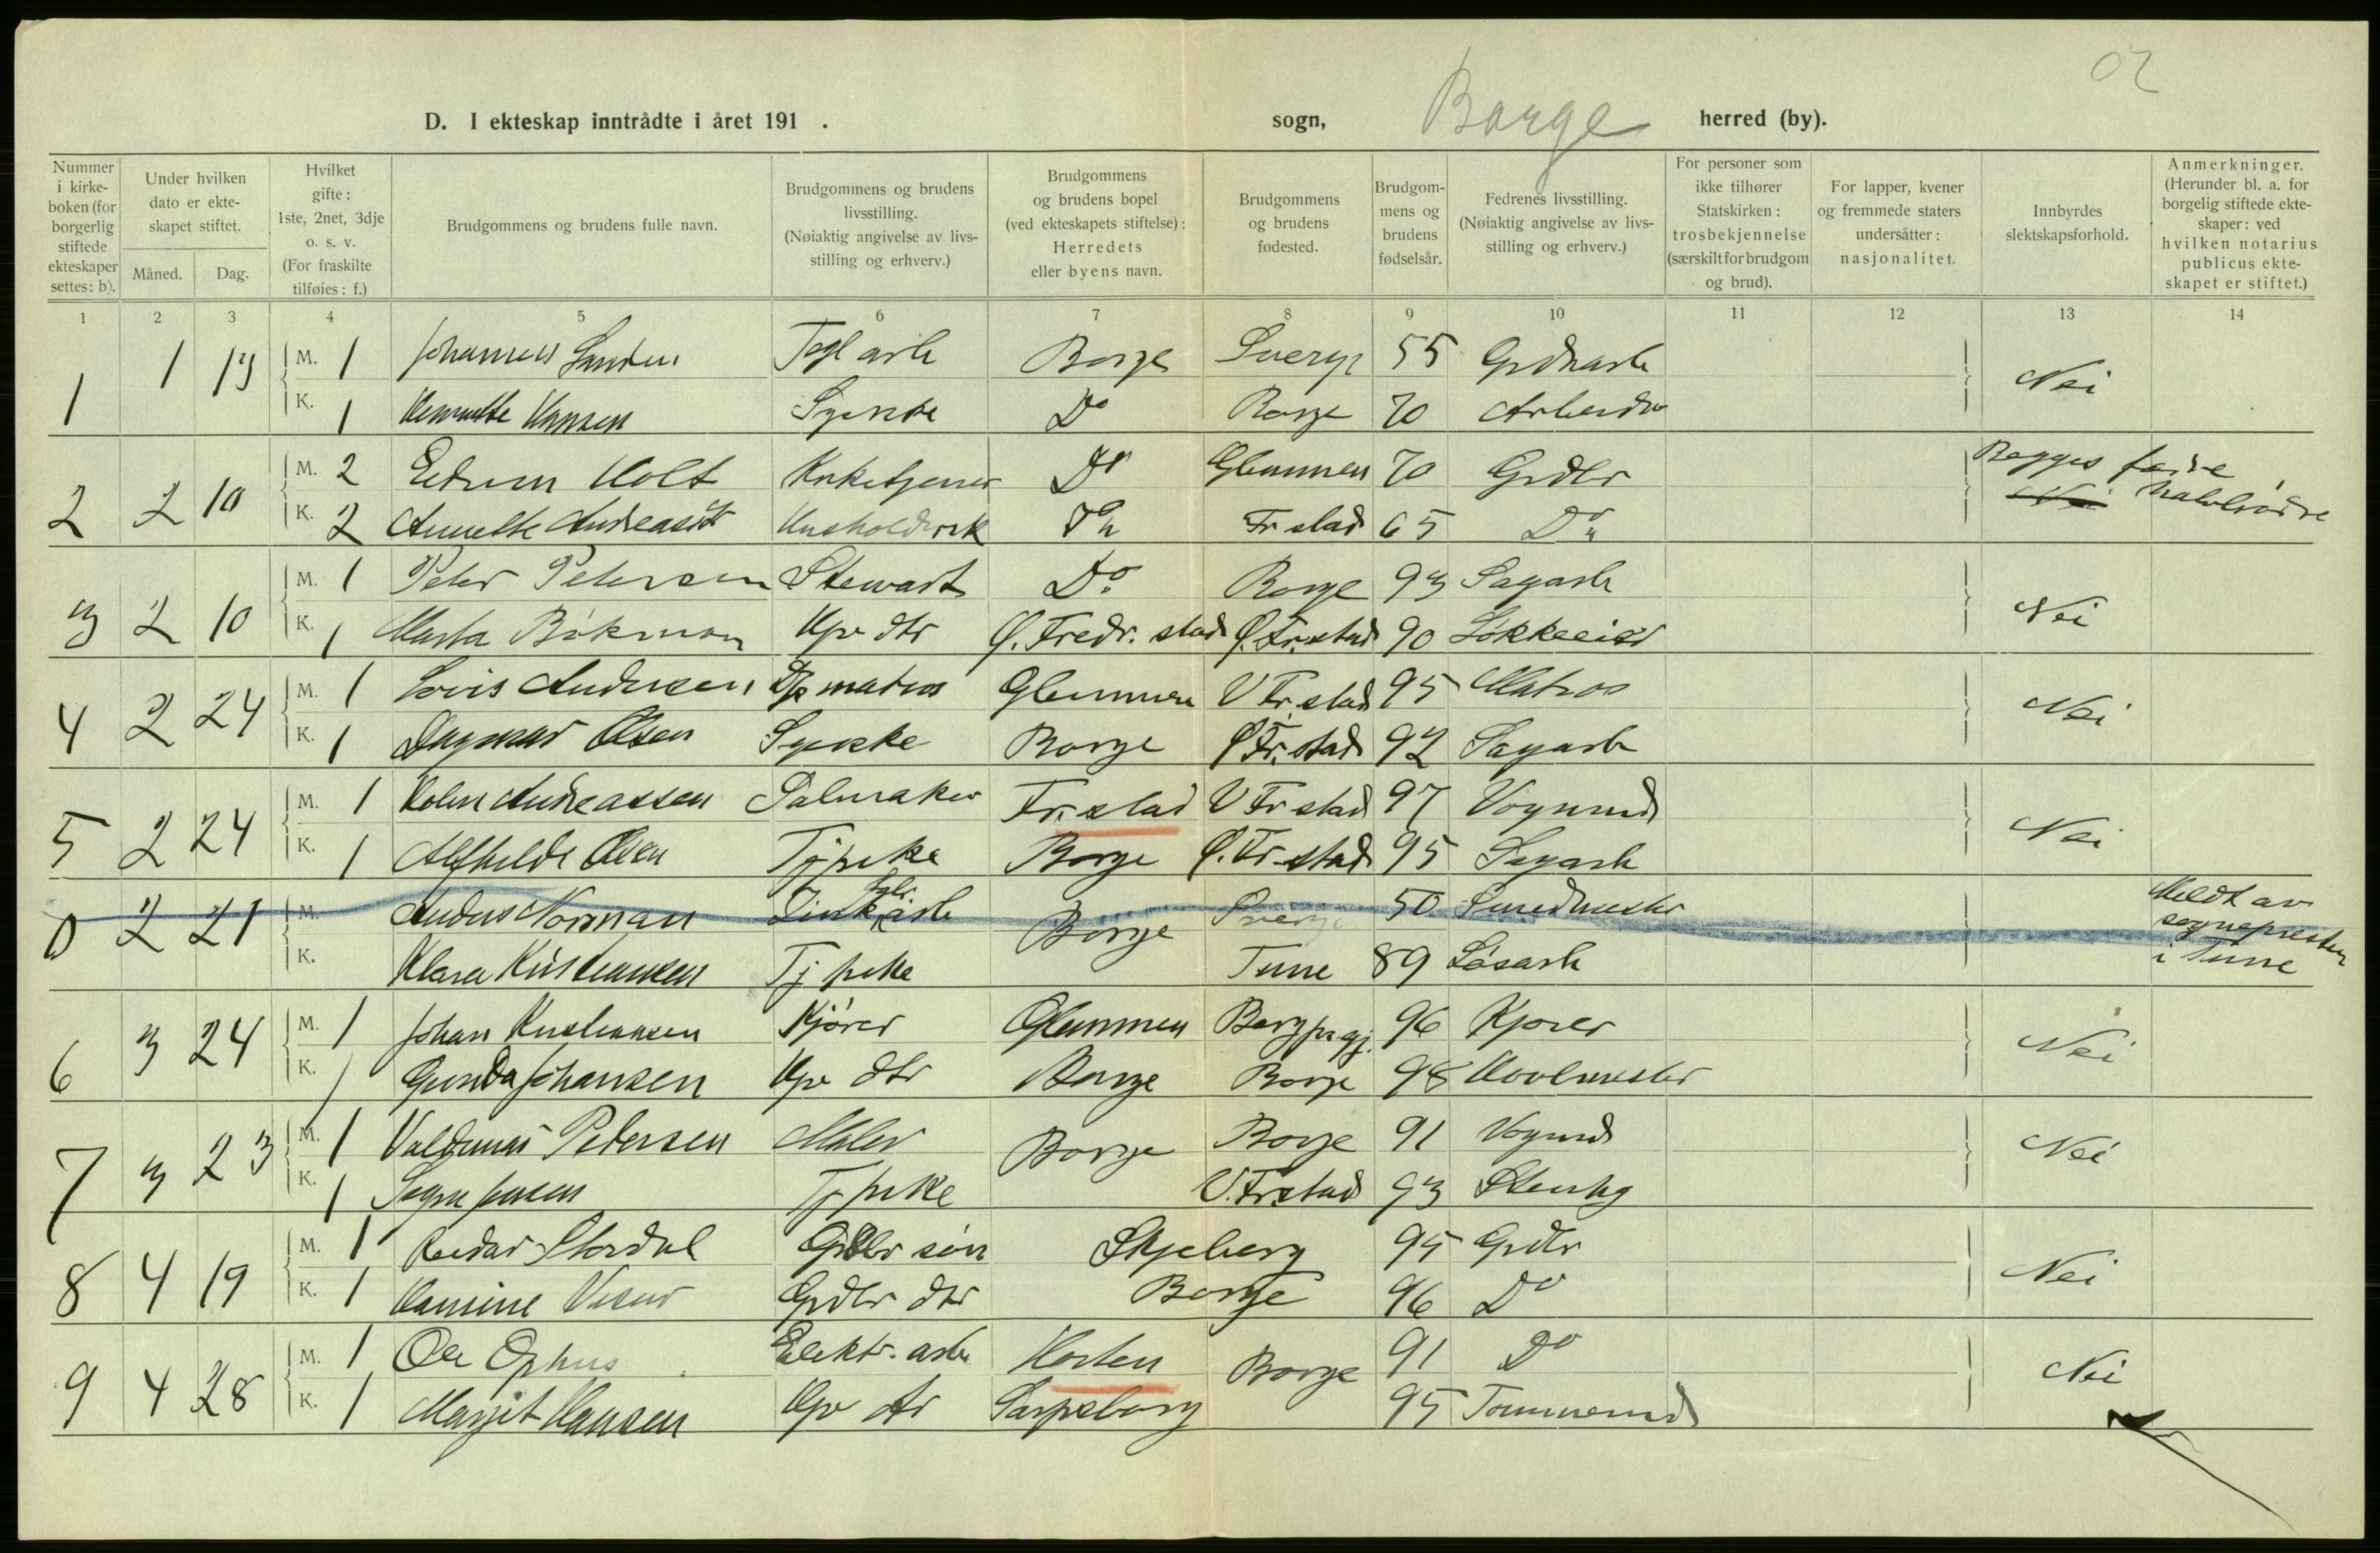 02
D. I ekteskap inntrådte i året 191 . sogn, Borge herred (by).
Nummer i kirkeboken (for borgerlig stiftede ekteskaper settes: b).
Under hvilken dato er ekteskapet stiftet.
Måned. Dag.
Hvilket gifte: 1ste, 2net, 3dje o. s. v. (For fraskilte tilføies: f.)
Brudgommens og brudens fulle navn.
Brudgommens og brudens livsstilling. (Nøiaktig angivelse av livsstilling og erhverv.)
Brudgommens og brudens bopel (ved ekteskapets stiftelse): Herredets eller byens navn.
Brudgommens og brudens fødested.
Brudgommens og brudens fødselsår.
Fedrenes livsstilling. (Nøiaktig angivelse av livsstilling og erhverv.)
For personer som ikke tilhører Statskirken: trosbekjennelse (særskilt for brudgom og brud).
For lapper, kvener og fremmede staters undersåtter: nasjonalitet.
Innbyrdes slektskapsforhold.
Anmerkninger. (Herunder bl. a. for borgelig stiftede ekteskaper: ved hvilken notarius publicus ekteskapet er stiftet.)
1 2 3 4 5 6 7 8 9 10 11 12 13 14
1 1 13 M. 1 Johannes Tegl arb Borge Sverge 55 Grdnarb Nei
K. 1 Hansen Sypike Do Borge 70 Arbeider
2 2 10 M. 2 Edvin Holt Kirketjener Do Glemmen 70 Grdbr Begges fedre halvbrødre
K. 2 Annette Andreasdtr Husholdersk Do Fr stad 65 Do Nei
3 2 10 M. 1 Peter Petersen Stewart Do Borge 93 Sagarb Nei
K. 1 Marta Bökman Hjv dtr Ø. Fredr. stad Ø. Fr. stad 90 Løkkeeier
4 2 24 M. 1 Lovis Andersen matros Glemmen V Fr. stad 95 Matros Nei
K. 1 Dagmar Olsen Sypike Borge Ø Fr. stad 92 Sagarb
5 2 24 M. 1 Andreassen Salmaker Fr. stad V Fr stad 97 Vognmd Nei
K. 1 Alfhilde Olsen Tjpike Borge Ø. Fr. stad 95 Sagarb
0 2 21 M. Anders Norman Zinkarb Borge Sverge 50 Smedmester Meldt av sognepresten i Tune
K. Klara Kristiansen Tj pike Tune 89 Løsarb
6 3 24 M. 1 Johan Kristiansen Kjører Glemmen Berg prgj. 96 Kjører Nei
K. 1 Gunda Johansen Hjv dtr Borge Borge 98 Hovlmester
7 3 23 M. 1 Valdemar Pedersen Maler Borge Borge 91 Vognmd Nei
K. 1 Signe Jensen Tj pike V. Fr. stad 93 Stenhg
8 4 19 M. 1 Reidar Stordal Grdbr søn Skjeberg 95 Grdbr Nei
K. 1 Grdbr dtr Borge 96 Do
9 4 28 M. 1 Ole Ophus Elektr. arb Horten Borge 91 Do Nei
K. 1 Margit Hansen Hjv dtr Sarpsborg 95 Tømmermd